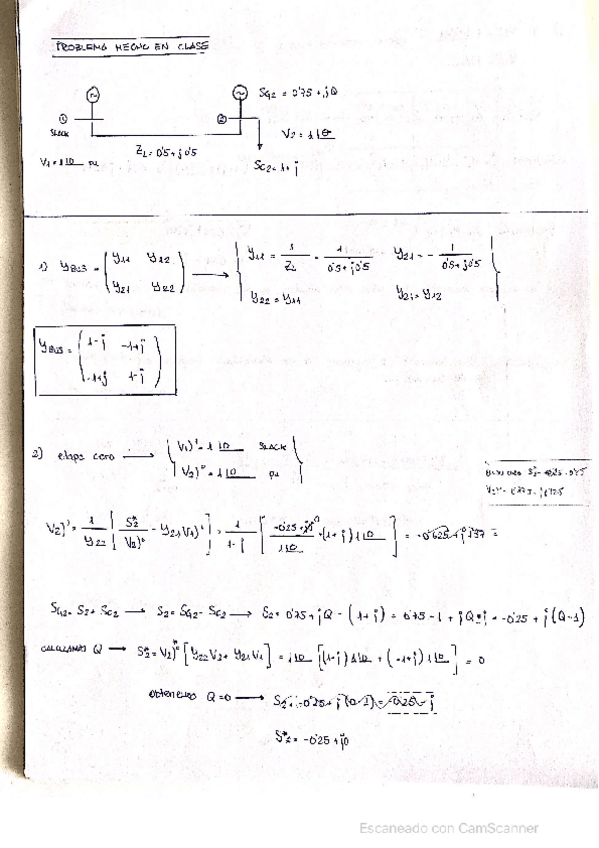 PROBLEMA HECHO EN CLASE
SG2 = 0'75 + jQ
① ②
SLACK
V2 = 1|θ
ZL = 0'5 + j0'5
V1 = 1|0 pu
SC2 = 1 + j
1) YBUS = (Y11 Y12 Y21 Y22) → { Y11 = 1/ZL = 1/(0'5 + j0'5) Y21 = - 1/(0'5 + j0'5)
Y22 = Y11 Y21 = Y12
YBUS = (1-j -1+j
-1+j 1-j)
2) etapa cero → { V1)° = 1|0 SLACK
V2)° = 1|0 pu
V2)¹ = 1/Y22 [S2*/V2)° - Y21 V1)°] = 1/(1-j) [(-0'25 + j0)/1|0 + (1+j) 1|0] = -0'625 + j1'37 =
SG2 = S2 + SC2 → S2 = SG2 - SC2 → S2 = 0'75 + jQ - (1+j) = 0'75 - 1 + jQ - j = -0'25 + j(Q-1)
CALCULAMOS Q → S2* = V2)* [Y22 V2 + Y21 V1] = 1|0 [(1-j) 1|0 + (-1+j) 1|0] = 0
obtenemos Q=0 → S2 = -0'25 + j(0-1) = -0'25 - j
S2* = -0'25 + j0
Escaneado con CamScanner